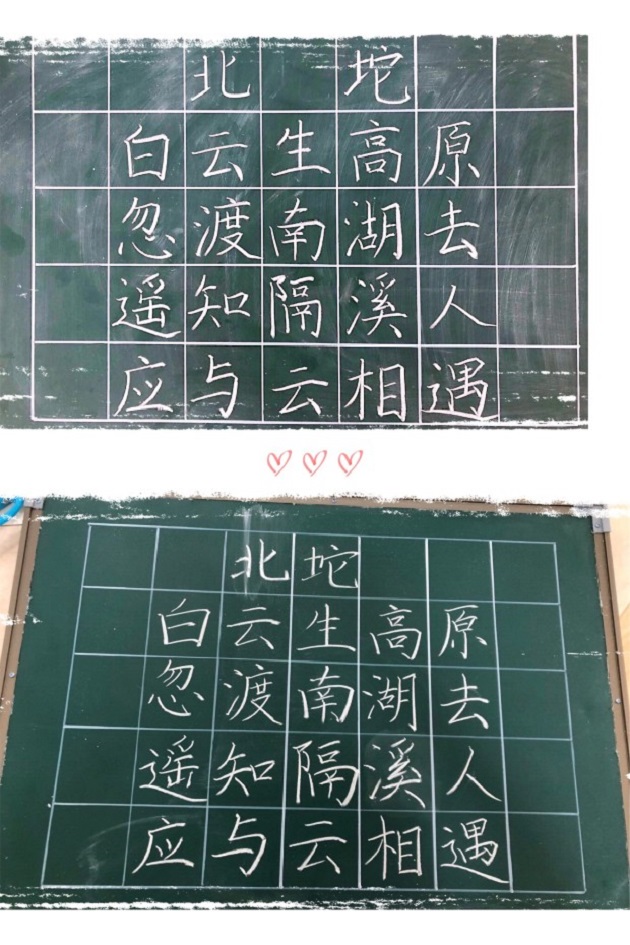 北坨
白云生高原
忽渡南湖去
遥知隔溪人
应与云相遇
北坨
白云生高原
忽渡南湖去
遥知隔溪人
应与云相遇